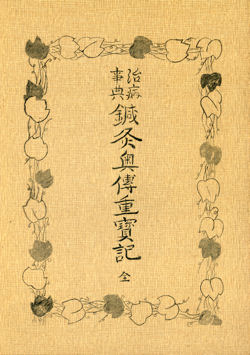 治病
事典
鍼灸奥傳重寳記
全